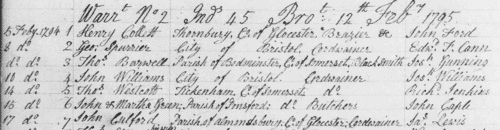 Warrt. No 2 Ind 45 Brot. 12th Feby 1795
5 Feby. 1794 1 Henry Collett Thornbury, Co. of Glocester Brazier &c John Ford
8 do. 2 Geo. Spurrier City of Bristol Cordwainer Edwd. T. Cann
do do 3 Thos. Barwell Parish of Bedminster, C. of Somerset, Black Smith Jos. Gunning
10 do. 4 John Williams City of Bristol Cordwainer Jos. Williams
14 do 5 Thos. Westcott Tickenham, C. of Somerset do Richd. Jenkins
15 do 6 John & Martha Green; Parish of Butchers John Caple
17 do. 7 John Parish of Almondsbury, C. of Glocester; Cordwainer Jas. Lewis